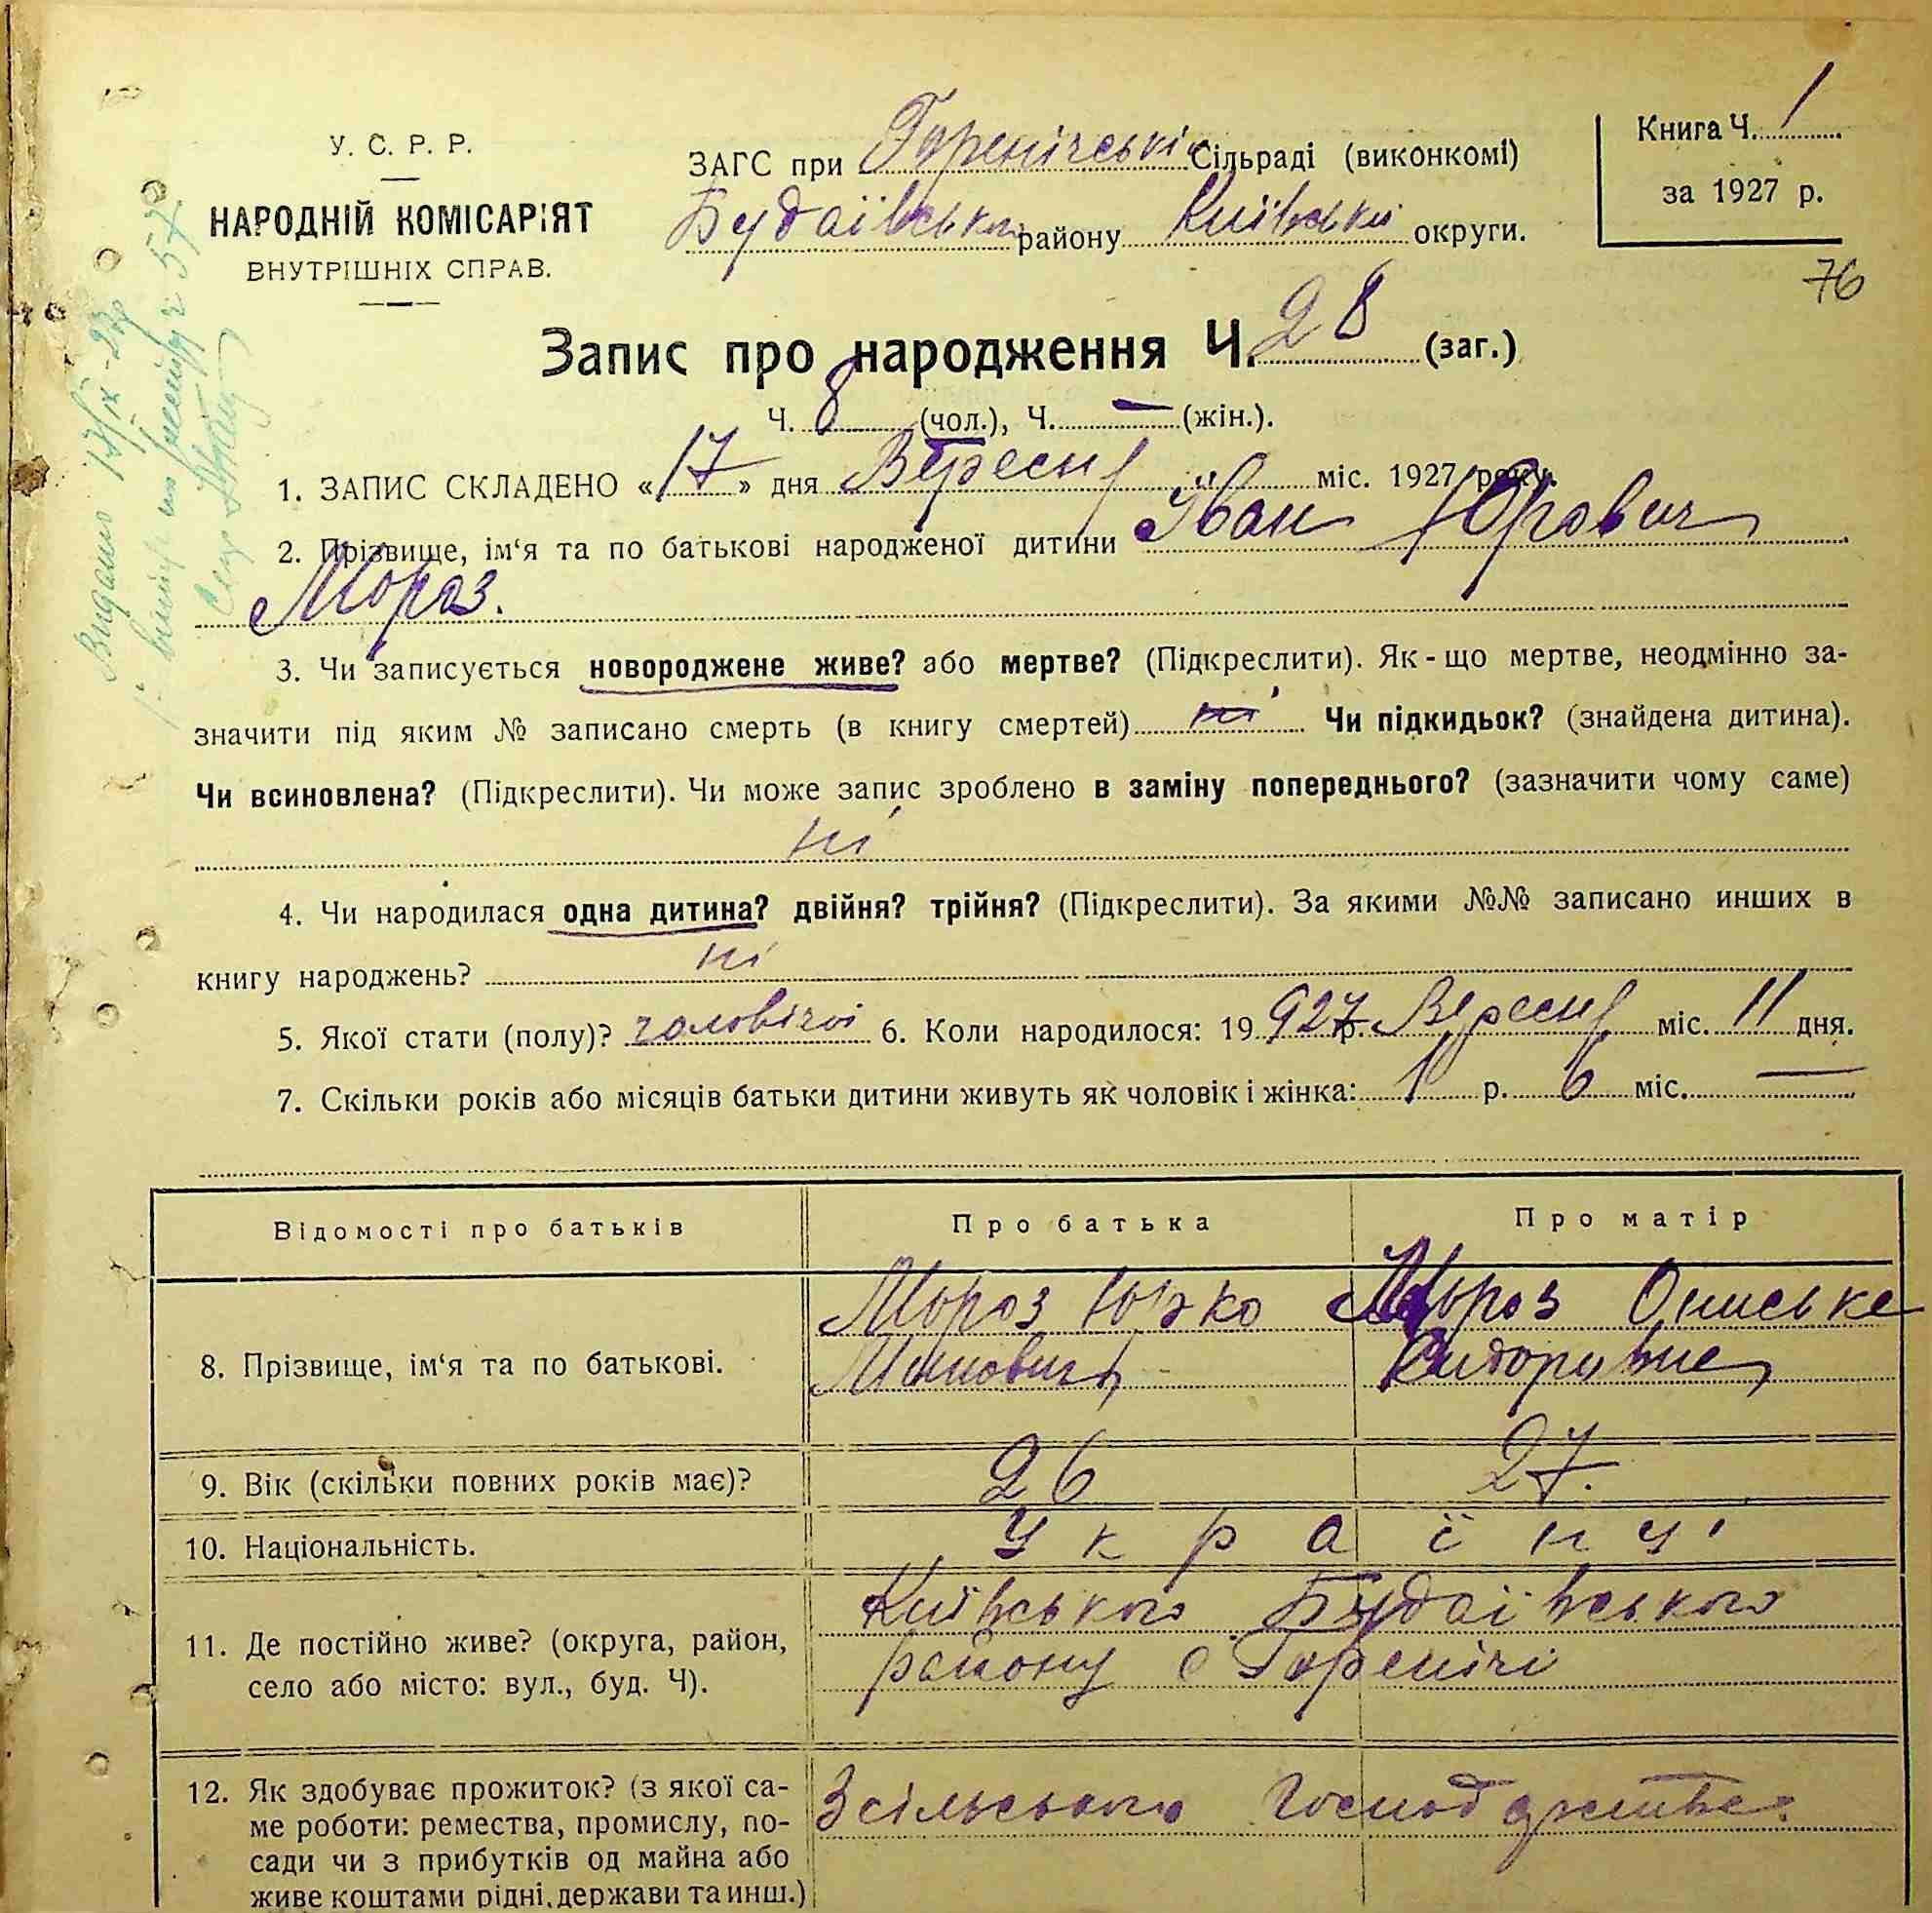 У. С. Р. Р.
НАРОДНІЙ КОМІСАРІЯТ
ВНУТРІШНІХ СПРАВ.
ЗАГС при Горенічські Сільраді (виконкомі)
Будаївськ району Київськ округи.
Книга Ч. 1
за 1927 р.
76
Видано 17/IX-27р
Запис про народження Ч. 28 (заг.)
Ч. 8 (чол.), Ч. — (жін.).
1. ЗАПИС СКЛАДЕНО «17» дня Вересня міс. 1927 року.
2. Прізвище, ім‘я та по батькові народженої дитини Іван Юрович
Мороз.
3. Чи записується новороджене живе? або мертве? (Підкреслити). Як-що мертве, неодмінно за-
значити під яким № записано смерть (в книгу смертей) ні Чи підкидьок? (знайдена дитина).
Чи всиновлена? (Підкреслити). Чи може запис зроблено в заміну попереднього? (зазначити чому саме)
ні
4. Чи народилася одна дитина? двійня? трійня? (Підкреслити). За якими №№ записано инших в
книгу народжень? ні
5. Якої стати (полу)? чоловічої 6. Коли народилося: 19 927 р. Вересня міс. 11 дня.
7. Скільки років або місяців батьки дитини живуть як чоловік і жінка: 1 р. 6 міс. —
Відомості про батьків Про батька Про матір
8. Прізвище, ім‘я та по батькові. Мороз Юрко Мороз Ониська
Сидоровна
9. Вік (скільки повних років має)? 26 27.
10. Національність. Українці
11. Де постійно живе? (округа, район,
село або місто: вул., буд. Ч).
Київського Будаївського
району с. Горенічі
12. Як здобуває прожиток? (з якої са-
ме роботи: ремества, промислу, по-
сади чи з прибутків од майна або
живе коштами рідні, держави та инш.)
З сільського господарства.